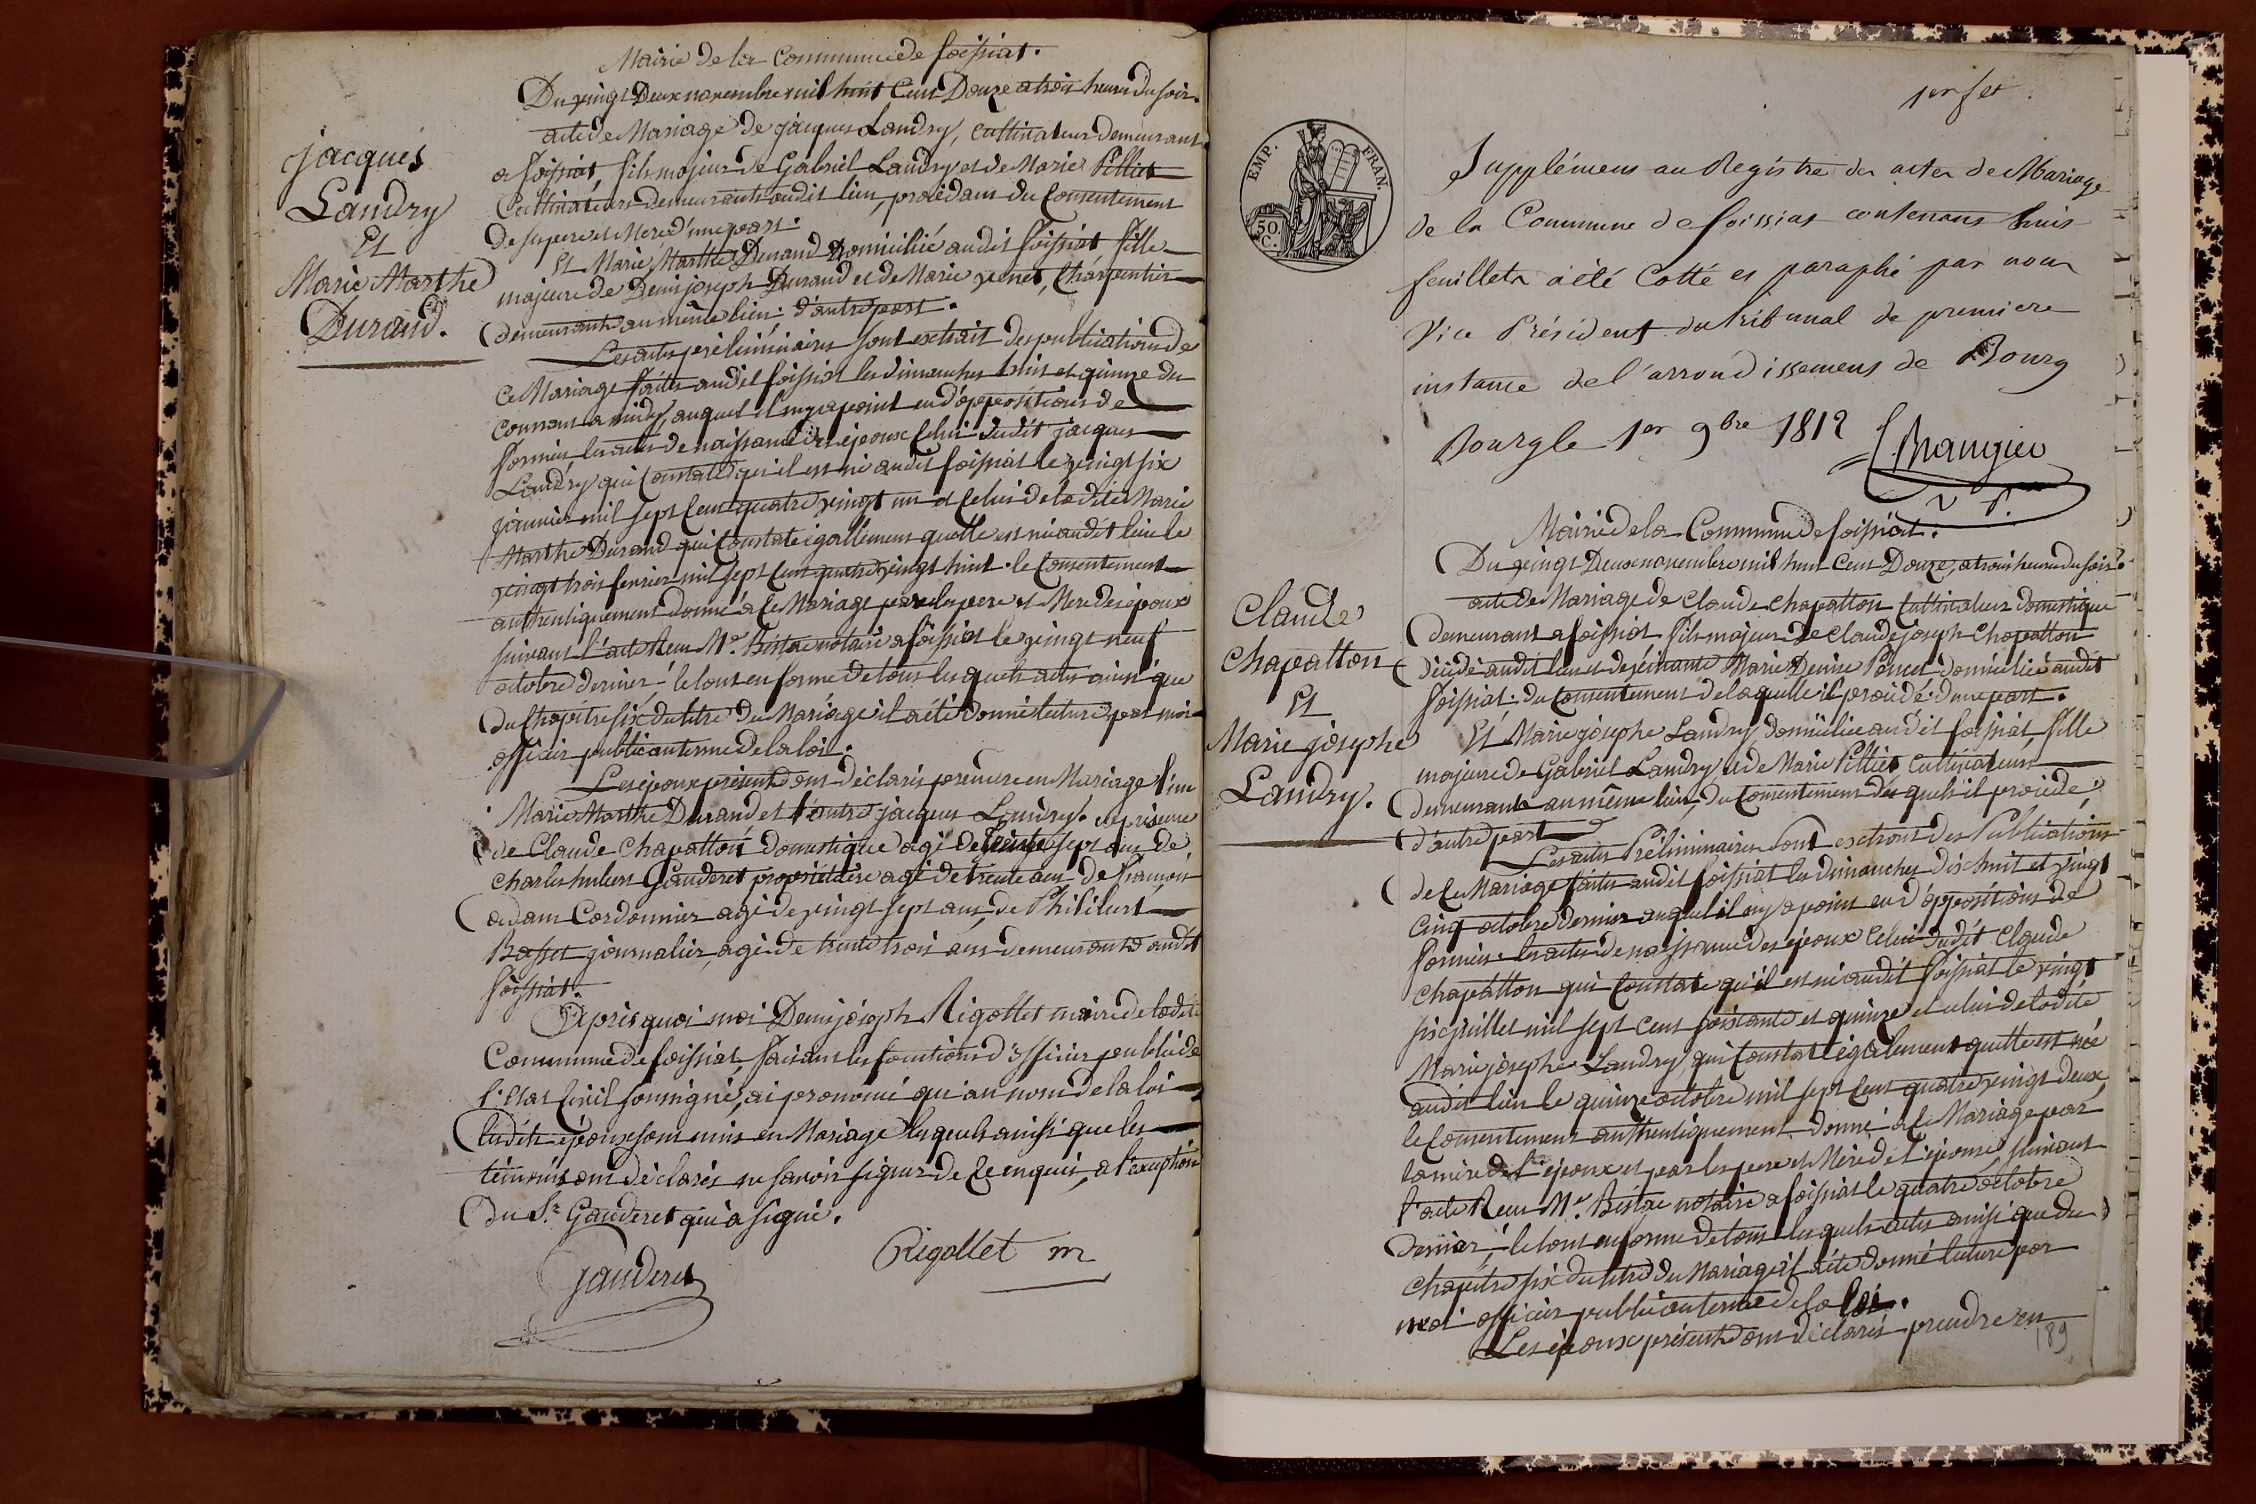 Mairie de la Commune de foissiat.
Du vingt Deux novembre mil huit Cent Douze a trois heures du soir.
acte de Mariage de jacques Landry, cultivateur demeurant
a foissiat, fils majeur de Gabriel Landry et de Marie Pilliet
Cultivateurs demeurants audit lieu, procédant du Consentement
de ses pere et Mere d'une part.
Et Marie Marthe Durand Domicilié audit foissiat fille
majeure de Denis joseph Durand et de Marie Charpentier
demeurants au même lieu: d'autre part.
jacques
Landry
Et
Marie Marthe
Durand.
Les actes préliminaires sont extrait des publications de
Ce Mariage faites audit foissiat les dimanches huit et quinze du
Courant a midy, auquel il ny a point eu d'oppositions de
formées, les actes de naissance des époux Celui dudit jacques
Landry qui Constate qu'il est né audit foissiat le vingt six
janvier mil sept Cent quatre vingt un et Celui de ladite Marie
Marthe Durand qui Constate égallement quelle est né audit lieu le
vingt trois fevrier mil sept Cent quatre vingt huit. le Consentement
authentiquement donné à Ce Mariage par les pere et Mere des époux
suivant l'acte Reçu Me. notaire a foissiat le vingt neuf
octobre dernier, le tout en forme de tous les quels actes ainsi que
du Chapitre six du titre du Mariage il a été donné lecture par moi
officier public au terme de la loi.
Les époux présents ont déclarés prendre en Mariage l'une
Marie Marthe Durand et l'autre jacques Landry. en présence
de Claude Chapatton domestique agé de trente sept ans de
Charles hubert Gauderet propriétaire agé de trente ans de francois
adam Cordonnier agé de vingt sept ans, de Philibert
Basset journalier, agé de trente trois ans demeurants audit
foissiat.
Apris quoi moi Denis joseph Rigollet maire de ladite
Commune de foissiat faisant les fonctions d'officier public de
l'Etat Civil soussigné, ai prononcé qu'au nom de la loi
lesdits époux sont unis en Mariage lesquels ainsi que les
témoins ont déclarés ne savoir signer de Ce enquis, a l'exception
du Sr. Gauderet qui a signé.
Gauderet
Rigollet m
1er fet
EMP. FRAN.
50.
C.
Supplément au Registre des actes de Mariage
de la Commune de foissiat contenant huit
feuillets a été Cotté et paraphé par nous
Vice Président du tribunal de premiere
instance de l'arrondissement de Bourg
Bourg le 1er 9bre 1812
v. P.
Mairie de la Commune de foissiat.
Du vingt Deux novembre mil huit Cent Douze, a trois heures du soir.
acte de Mariage de Claude Chapatton Cultivateur domestique
demeurant a foissiat fils majeur de Claude joseph Chapatton
décédé audit lieu et de vivante Marie Denise Poncet domiciliée audit
foissiat. du Consentement de laquelle il procéde. d'une part.
Claude
Chapatton
Et
Marie josephe
Landry.
Et Marie josephe Landry domiciliée audit foissiat fille
majeure de Gabriel Landry et de Marie Pilliet Cultivateurs
demeurants au même lieu, du Consentement des quels il procéde,
d'autre part
Les actes Préliminaires sont extrait des Publications
de Ce Mariage faites audit foissiat les dimanches dix huit et vingt
Cinq octobre dernier auquel il ny a point eu d'oppositions de
formées. les actes de naissance des époux Celui dudit Claude
Chapatton qui Constate qu'il est né audit foissiat le vingt
six juillet mil sept cent soixante et quinze et celui de ladite
Marie josephe Landry qui Constate égalemens quelle est née
audit lieu le quinze octobre mil sept Cent quatre vingt deux,
le Consentement authentiquement donné à Ce Mariage par
la mère de l'époux et par les pere et Mère de l'épouse suivant
l'acte Reçu Me. notaire a foissiat le quatre octobre
dernier, le tout en forme de tous lesquels actes ainsi que du
Chapitre six du titre du Mariage il a été donné lecture par
moi officier public au terme de la loi.
Les époux présents ont déclarés prendre en
189